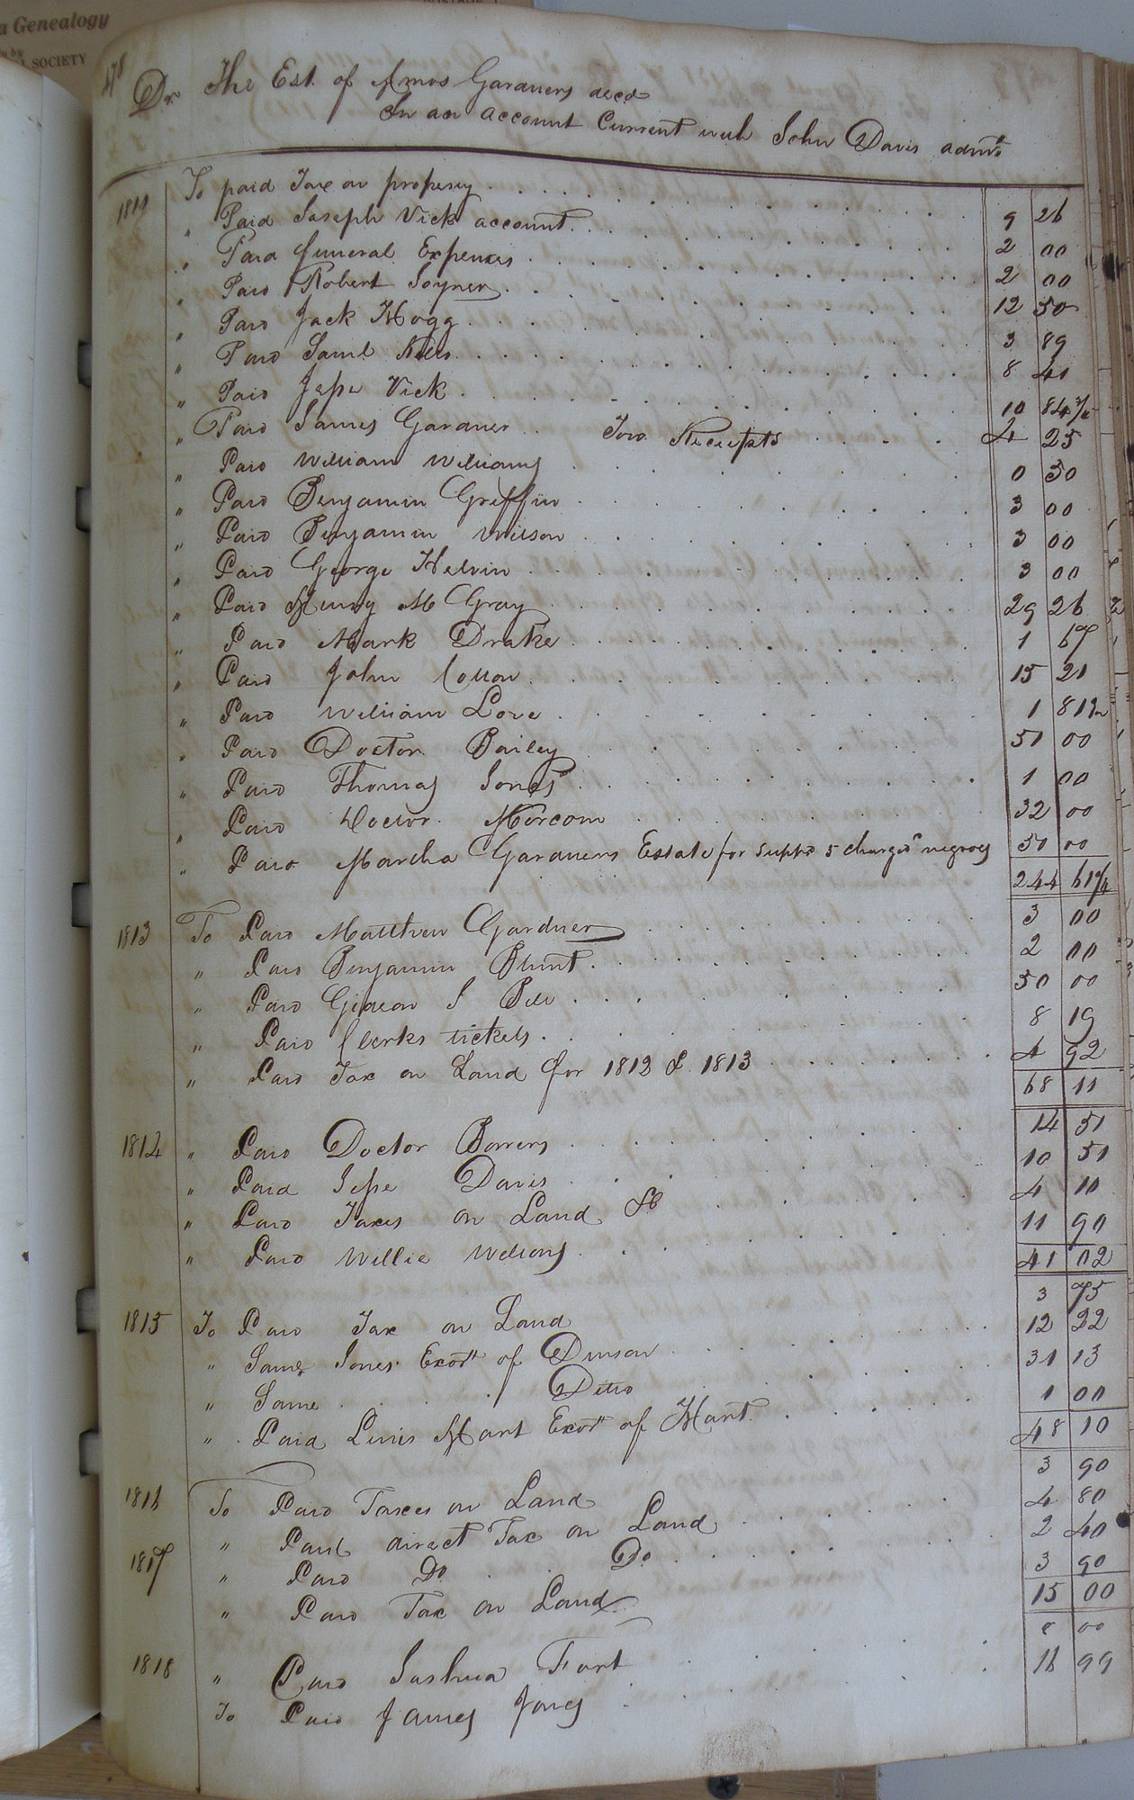 a Genealogy
SOCIETY
478
Dr. The Est. of Amos Gardners decd
In an account Current with John Davis admr.
1811 To paid Tax on property 9 26
" Paid Joseph Vick account 2 00
" Paid funeral Expenses 2 00
" Paid Robert Joyner 12 50
" Paid Jack Hogg 3 89
" Paid Saml 8 41
" Paid Jesse Vick 10 84 3/4
" Paid James Gardner Two Receipts 4 25
" Paid William Williams 0 50
" Paid Benjamin Griffin 3 00
" Paid Benjamin Wilson 3 00
" Paid George Helvin 3 00
" Paid Henry M Gray 29 26
" Paid Mark Drake 1 67
" Paid John Cotton 15 21
" Paid William Love 1 81 1/2
" Paid Doctor Bailey 51 00
" Paid Thomas Jones 1 00
" Paid Doctor Morcom 32 00
" Paid Martha Gardners Estate for supptg 5 charged negroes 50 00
244 61 1/4
1813 To Paid Matthew Gardner 3 00
" Paid Benjamin Blunt 2 00
" Paid Gideon J Bell 50 00
" Paid Clerks tickets 8 19
" Paid Tax on Land for 1812 & 1813 4 92
68 11
1814 " Paid Doctor Bowers 14 51
" Paid Jesse Davis 10 51
" Paid Taxes on Land &c 4 10
" Paid Willie Williams 11 90
41 02
1815 To Paid Tax on Land 3 75
" James Jones Exor of Dunson 12 22
" Same Ditto 31 13
" Paid Lewis Hart Exor of Hart 1 00
48 10
1816 To Paid Taxes on Land 3 90
" Paid direct Tax on Land 4 80
1817 " Paid Do. Do. 2 40
" Paid Tax on Land 3 90
15 00
1818 " Paid Joshua Fort 8 00
To Paid James Jones 16 99